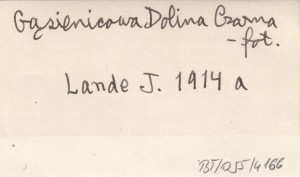 Gąsienicowa Dolina Czarna
- fot.
Lande J. 1914 a